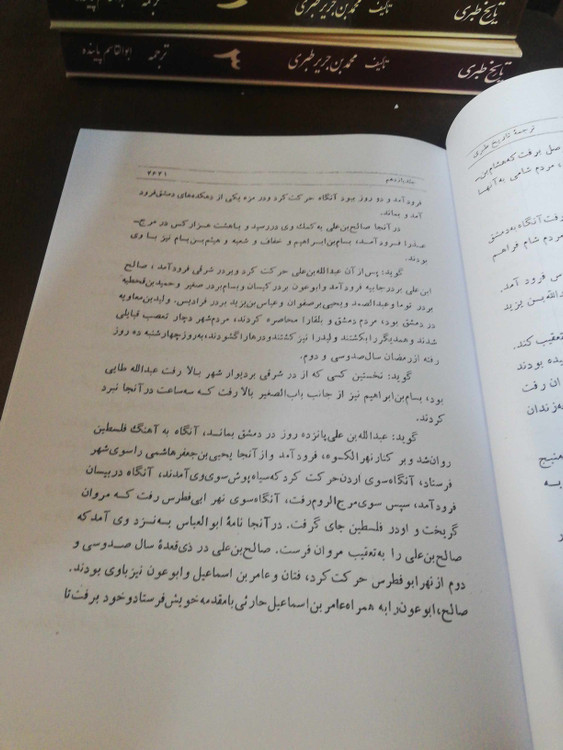 تاریخ طبری تألیف محمد بن جریر طبری ترجمه
تاریخ طبری تألیف محمد بن جریر طبری ۳ ترجمه ابوالقاسم پاینده
ترجمهٔ تاریخ طبری
جلد یازدهم ۴۶۴۱
فرود آمد و دو روز ببود آنگاه حرکت کرد و در مزه یکی از دهکده‌های دمشق فرود
آمد و بماند.
در آنجا صالح بن علی به کمک وی در رسید و با هشت هزار کس در مرج-
عذرا فرود آمد، بسام بن ابراهیم و خفاف و شعبه و هیثم بن بسام نیز با وی
بودند.
گوید: پس از آن عبدالله بن علی حرکت کرد و بر در شرقی فرود آمد، صالح
ابن علی بر در جابیه فرود آمد و ابوعون بر در کیسان و بسام بر در صغیر و حمید بن قحطبه
بر در توما و عبدالصمد و یحیی بر صفوان و عباس بن یزید بر در فرادیس. ولید بن معاویه
در دمشق بود، مردم دمشق و بلقا را محاصره کردند، مردم شهر دچار تعصب قبایلی
شدند و همدیگر را بکشتند و لید را نیز کشتند و درها را گشودند، به روز چهارشنبه ده روز
رفته از رمضان سال صد و سی و دوم.
گوید: نخستین کسی که از در شرقی بر دیوار شهر بالا رفت عبدالله طایی
بود، بسام بن ابراهیم نیز از جانب باب الصغیر بالا رفت که سه ساعت در آنجا نبرد
کردند.
گوید: عبدالله بن علی پانزده روز در دمشق بماند، آنگاه به آهنگ فلسطین
روان شد و بر کنار نهر الکسوه، فرود آمد و از آنجا یحیی بن جعفر هاشمی را سوی شهر
فرستاد، آنگاه سوی اردن حرکت کرد که سیاه پوش سوی وی آمدند، آنگاه در بیسان
فرود آمد، سپس سوی مرج الروم رفت، آنگاه سوی نهر ابی فطرس رفت که مروان
گریخت و او در فلسطین جای گرفت. در آنجا نامهٔ ابوالعباس به نزد وی آمد که
صالح بن علی را به تعقیب مروان فرست. صالح بن علی در ذی قعدهٔ سال صد و سی و
دوم از نهر ابوفطرس حرکت کرد، فتان و عامر بن اسماعیل و ابوعون نیز با وی بودند.
صالح، ابوعون را به همراه عامر بن اسماعیل حارثی با مقدمه خویش فرستاد و خود برفت تا